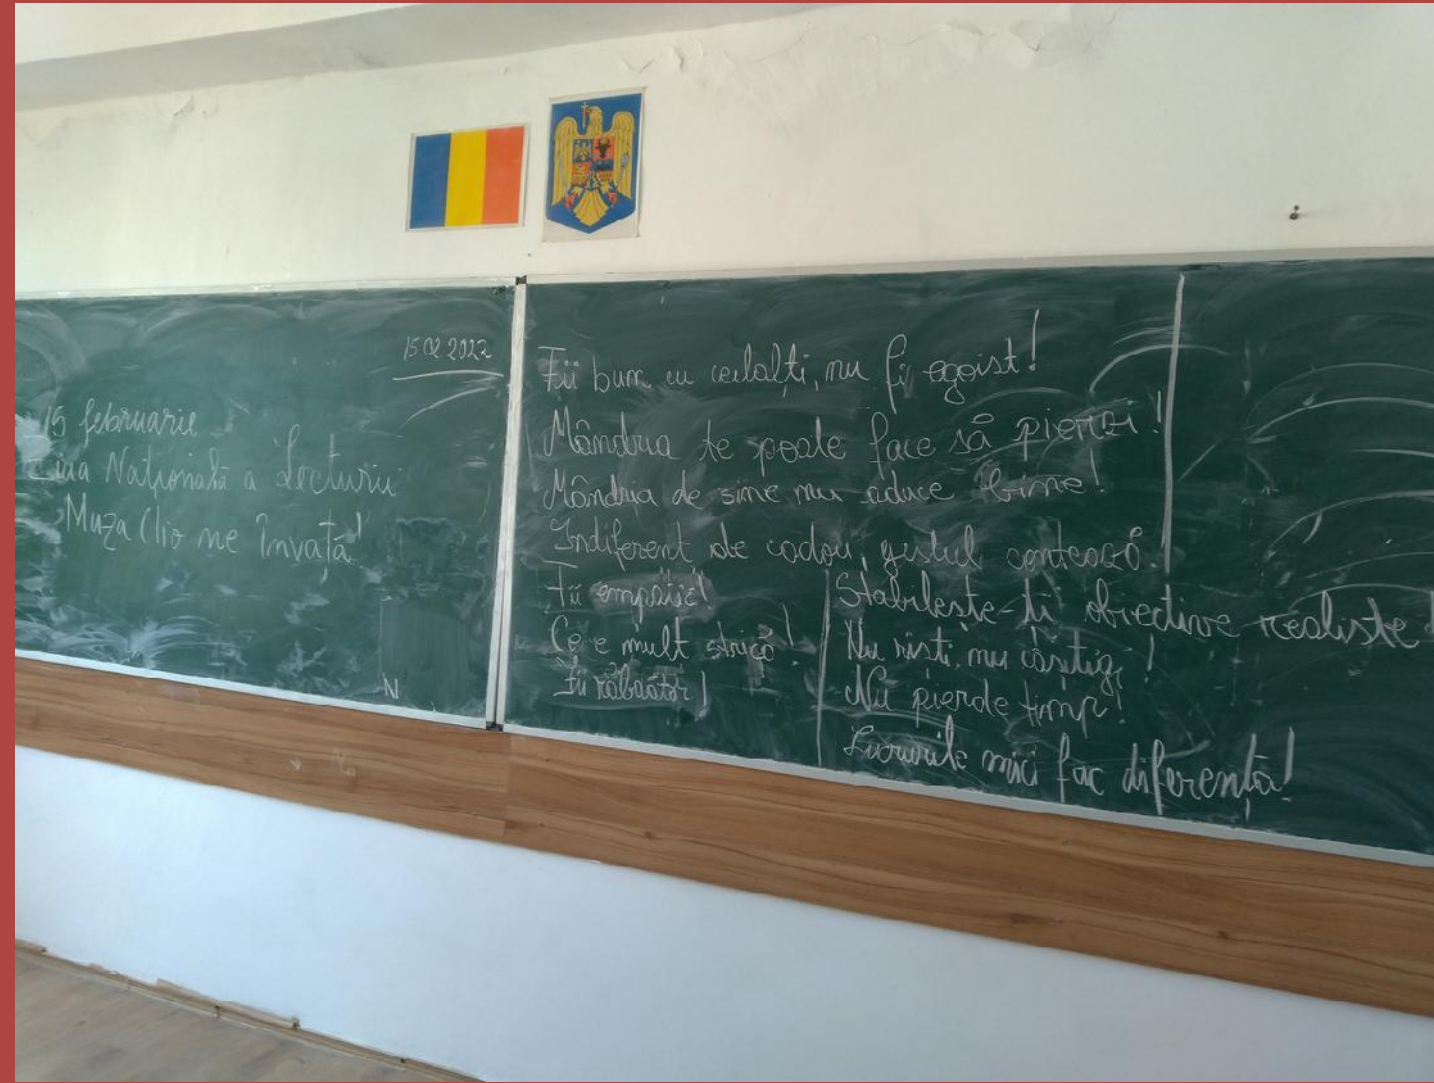 15 02 2022
15 februarie
Ziua Națională a Lecturii
Muza Clio ne învață!
N
Fii bun cu ceilalți, nu fi egoist!
Mândria te poate face să pierzi!
Mândria de sine nu aduce bine!
Indiferent de cadou, gestul contează!
Fii empatic!
Ce e mult strică!
Fii răbdător!
Stabilește-ți obiective realiste!
Nu riști, nu câștigi!
Nu pierde timp!
Lucrurile mici fac diferența!